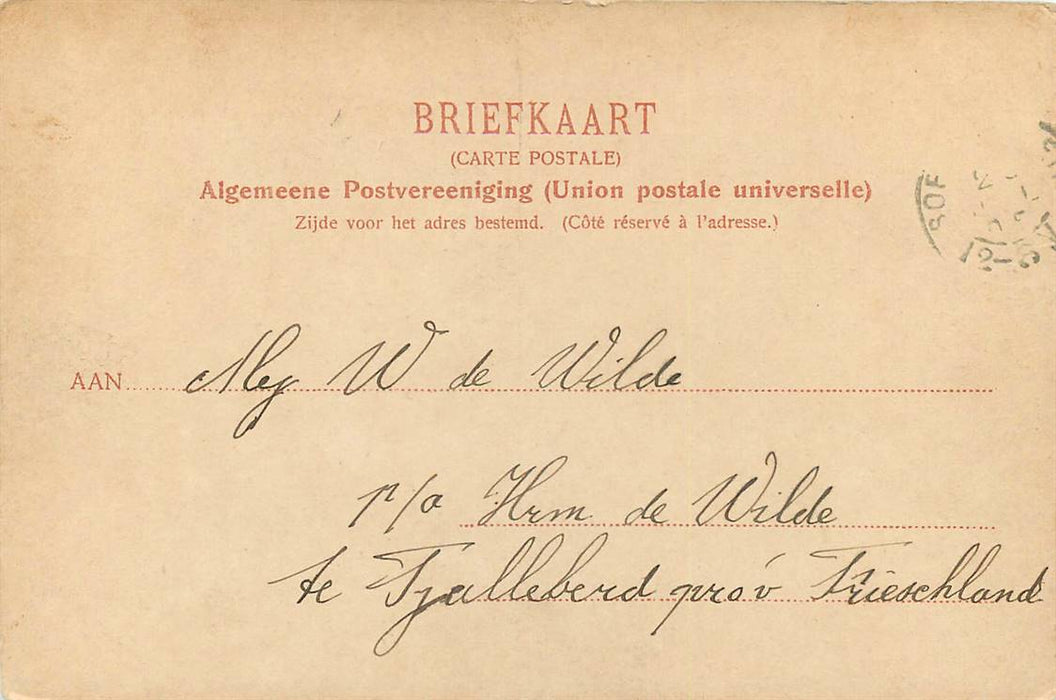 BRIEFKAART
(CARTE POSTALE)
Algemeene Postvereeniging (Union postale universelle)
Zijde voor het adres bestemd. (Côté réservé à l'adresse.)
AAN Mej W de Wilde
p/a Hrm de Wilde
te Tjalleberd prov Frieschland